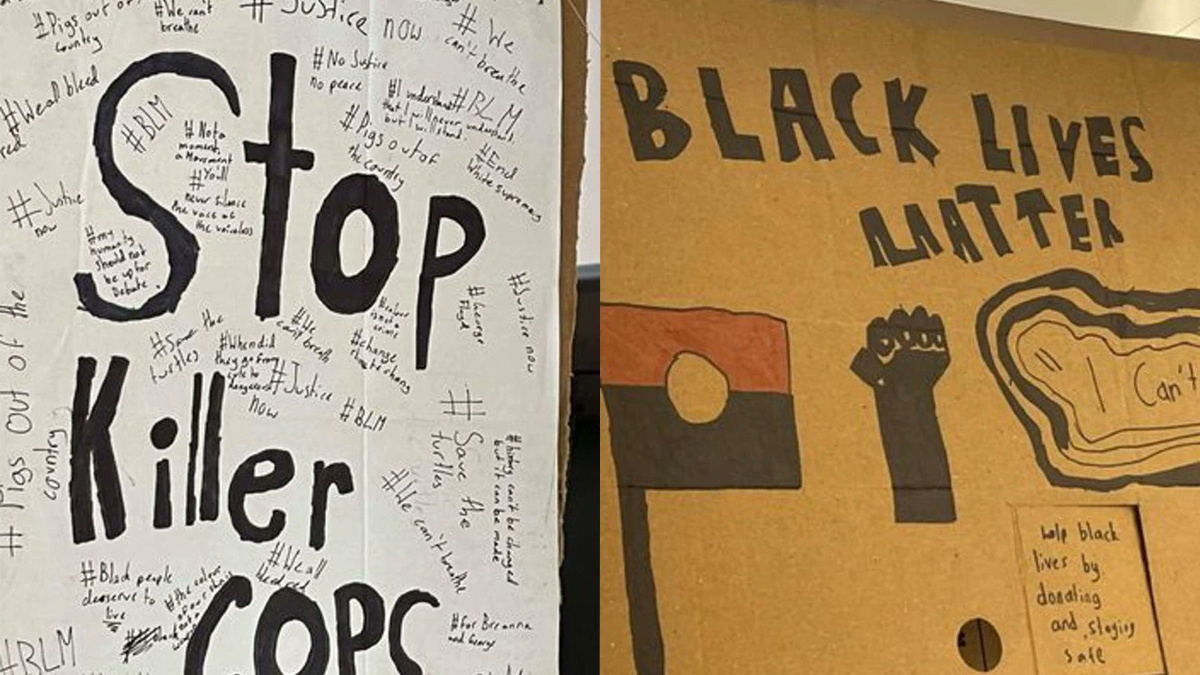 #Pigs out of
country
#We can't
breathe
#Justice
now
#We
can't breathe
#We all bleed
red
Stop
#No Justice
no peace
#BLM
#I understand
that I will never understand.
but I will stand.
#BLM
#Pigs out of
the country
#End
white supremacy
#Not a
moment,
a Movement
#You'll
never silence
the voice of
the voiceless
#Justice
now
#my
humanity
should not
be up for
Debate.
#George
Floyd
#Justice now
#colour
is not a
crime
#We
can't breath
#Save the
turtles
#When did
they go from
cute to
dangerous
#change
#Justice
now
#BLM
Killer
#Pigs out of the
country
#Save the
turtles
#history can't be changed
but it can be made
#We can't breathe
#We all
bleed red
#Black people
deserve to
live
#the colour
of our
#For Breanna
and George
#BLM
COPS
BLACK LIVES
MATTER
" I Can't
help black
lives by
donating
and staying
safe